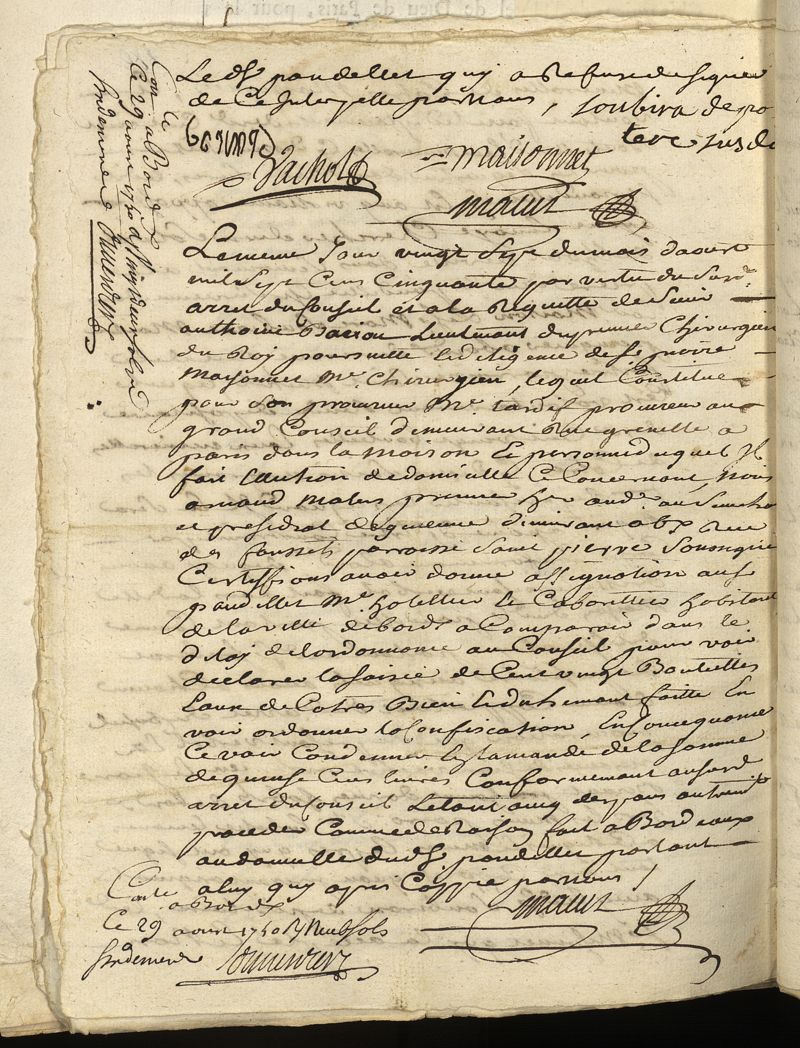 Le dt pandellet quy a Refusé de signer
de Ce Interpellé par nous, Soubira
Vachol Maisonnet
Maleu
Le meme Jour vingt Sept du mois daoust
mil Sept Cens Cinquante par vertu du Susd
arret du Conseil et a la Requette de Sieur
anthoine Lieutenant du premier Chirurgien
du Roy poursuitte et diligence de Sr pierre
Mayonnet Me Chirurgien, lequel Constitue
pour Son procureur Me tardif procureur au
grand Conseil demeurant Rue grenelle a
paris dans la Maison et personne duquel Il
fait Election de domicille Ce Concernant, Nous
arnaud premier
et presidial de guienne demeurant a bx Rue
des fossés parroisse Saint pierre Soussigné
Certiffions avoir donné assignation au Sr
pandellet Me hotellier et Cabarettier habitant
de la ville de bordx a Comparoir dans le
delay de lordonnance au Conseil pour voir
declarer la saisie de Cent vingt Bouteilles
Eaux de Cotrés Bien et duhement faitte En
voir ordonner la Confiscation, En Consequance
Ce voir Condemner En lamande de la somme
de quinse Cens livres Conformement au susd
arret du Conseil
proceder Comme de Raison fait a Bordeaux
au domicille du dt Sr pandellet parlant
a luy quy apris Coppie par nous
Maleu
Conlé a Bordx
Ce 29 aoust 1750 Rx Neuf Sols
Conlé a Bordx
Ce 29 aoust 1750